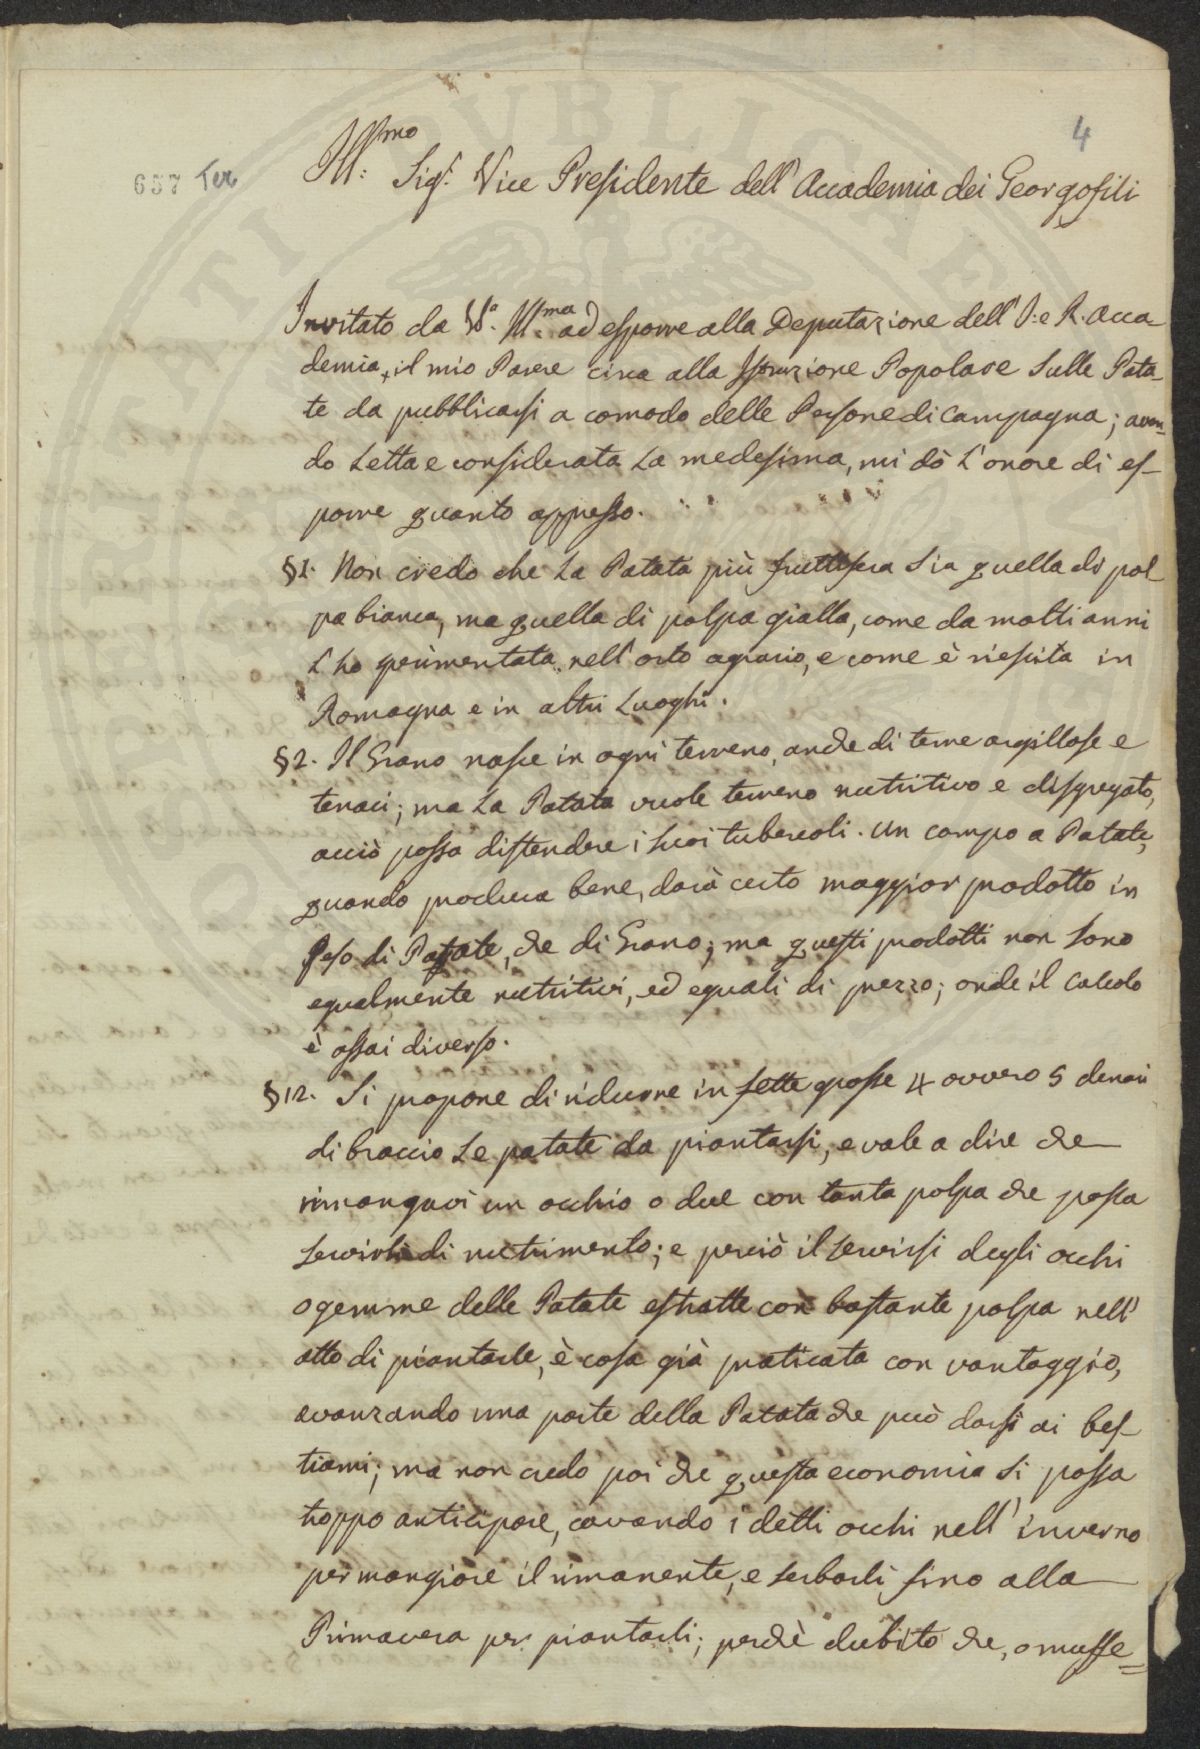 4
657 Ter
Ill:mo Sigr. Vice Presidente dell'Accademia dei Georgofili
Invitato da VSa. Ill:ma ad esporre alla Deputazione dell'I: e R. Acca-
demia, il mio Parere circa alla Istruzione Popolare sulle Pata-
te da pubblicarsi a comodo delle Persone di Campagna; aven-
do Letta e considerata La medesima, mi dò L'onore di es-
porre quanto appresso.
§1. Non credo che La Patata più fruttifera sia quella di pol-
pa bianca, ma quella di polpa gialla, come da molti anni
L'ho sperimentata nell'orto agrario, e come è riescita in
Romagna e in altri Luoghi.
§2. Il Grano nasce in ogni terreno, anche di terre argillose e
tenaci; ma La Patata vuole terreno nutritivo e disgregato,
acciò possa distendere i suoi tubercoli. Un campo a Patate,
quando produca bene, darà certo maggior prodotto in
Peso di Patate, che di Grano; ma questi prodotti non sono
egualmente nutritivi, ed eguali di prezzo; onde il Calcolo
è assai diverso.
§12. Si propone di ridurre in fette grosse 4 ovvero 5 denari
di braccio Le patate da piantarsi, e vale a dire che
rimangavi un occhio o due con tanta polpa che possa
servirli di nutrimento; e perciò il servirsi degli occhi
o gemme delle Patate estratte con bastante polpa nell'
atto di piantarle, è cosa già praticata con vantaggio,
avanzando una parte della Patata che può darsi ai bes-
tiami; ma non credo poi che questa economia si possa
troppo anticipare, cavando i detti occhi nell'inverno
per mangiare il rimanente, e serbarli fino alla
Primavera per piantarli; perchè dubito che, o muffe=